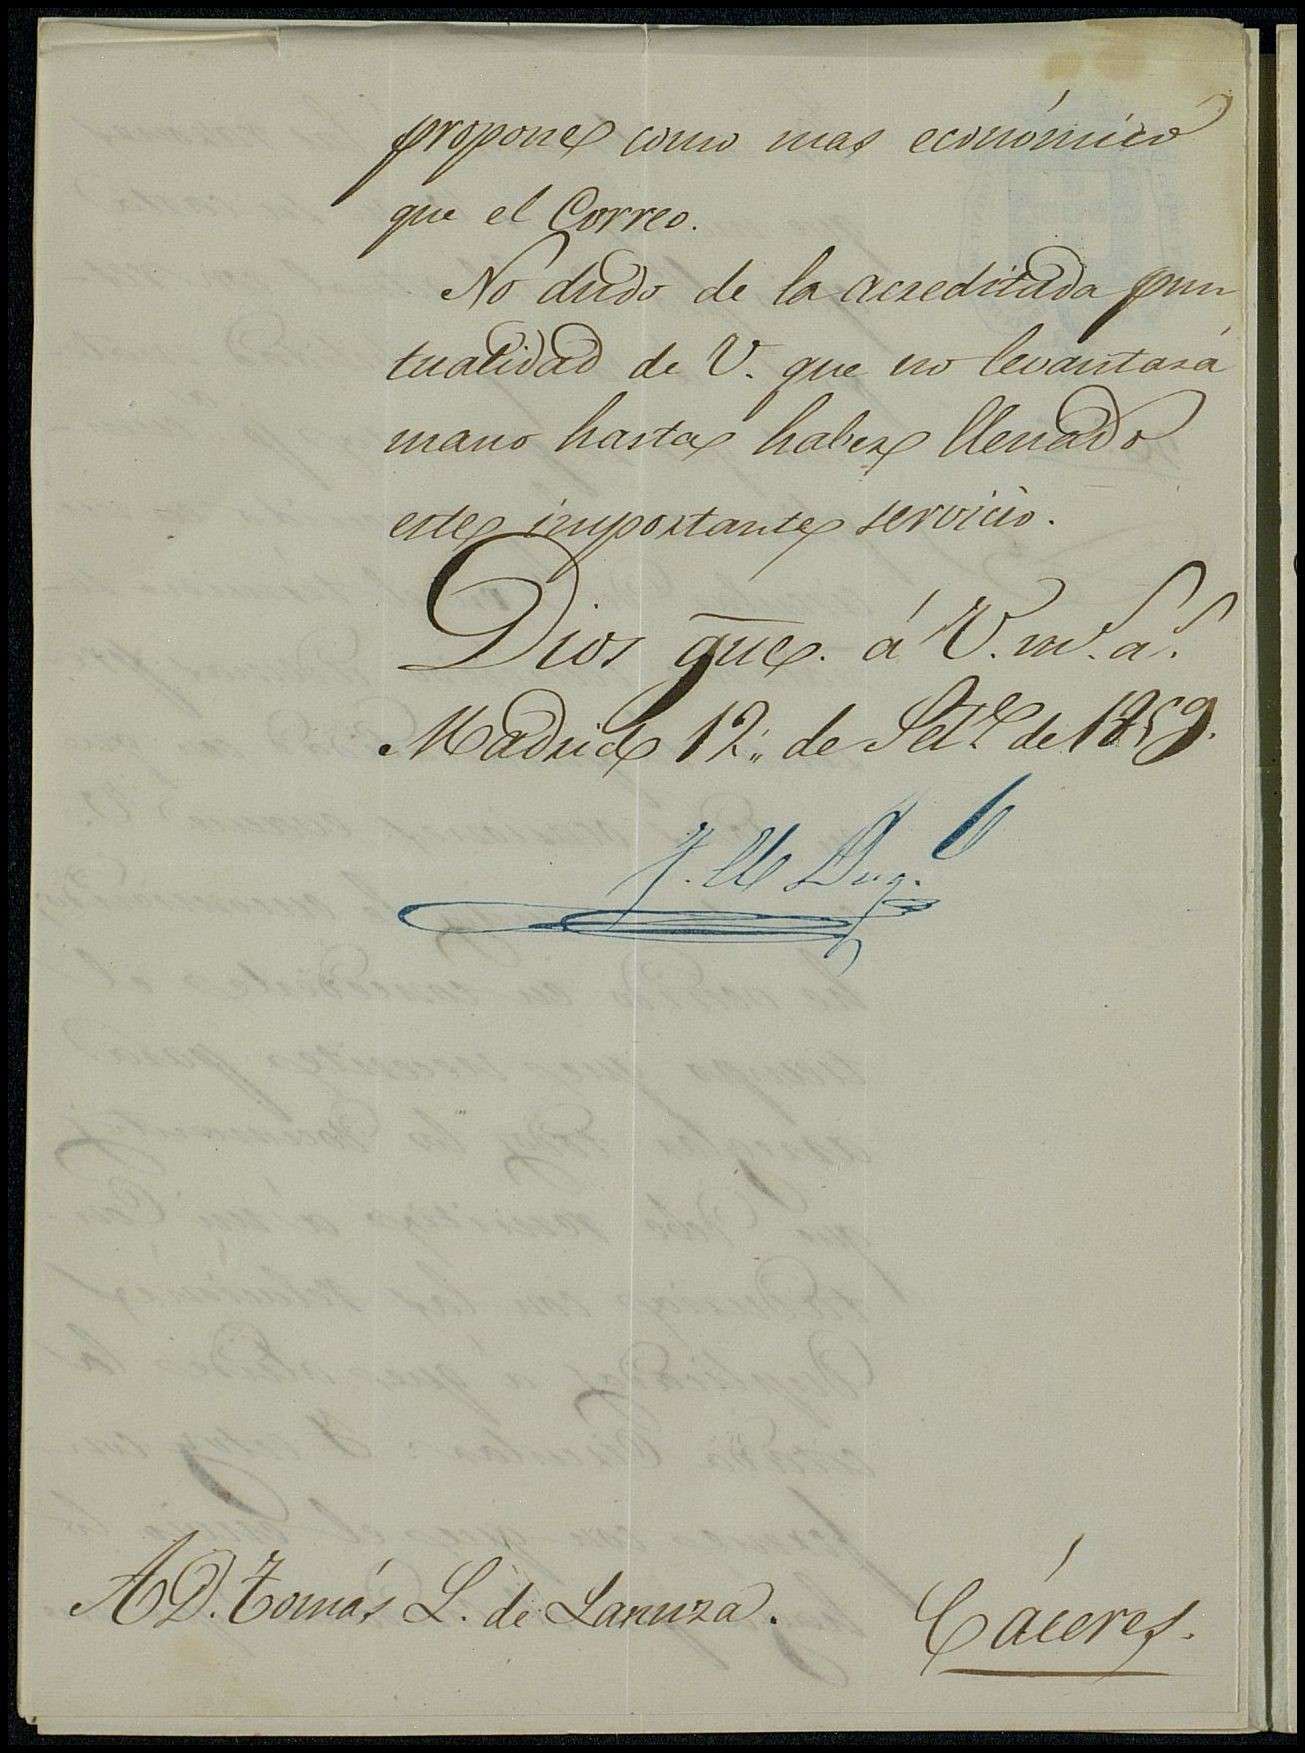 propone como mas económico
que el Correo.
No dudo de la acreditada pun
tualidad de V. que no levantará
mano hasta haber llenado
este importante servicio.
Dios gue. á V. ms. as.
Madrid 12 de Set.e de 1859.
A D. Tomás L. de Lanuza.
Cáceres.